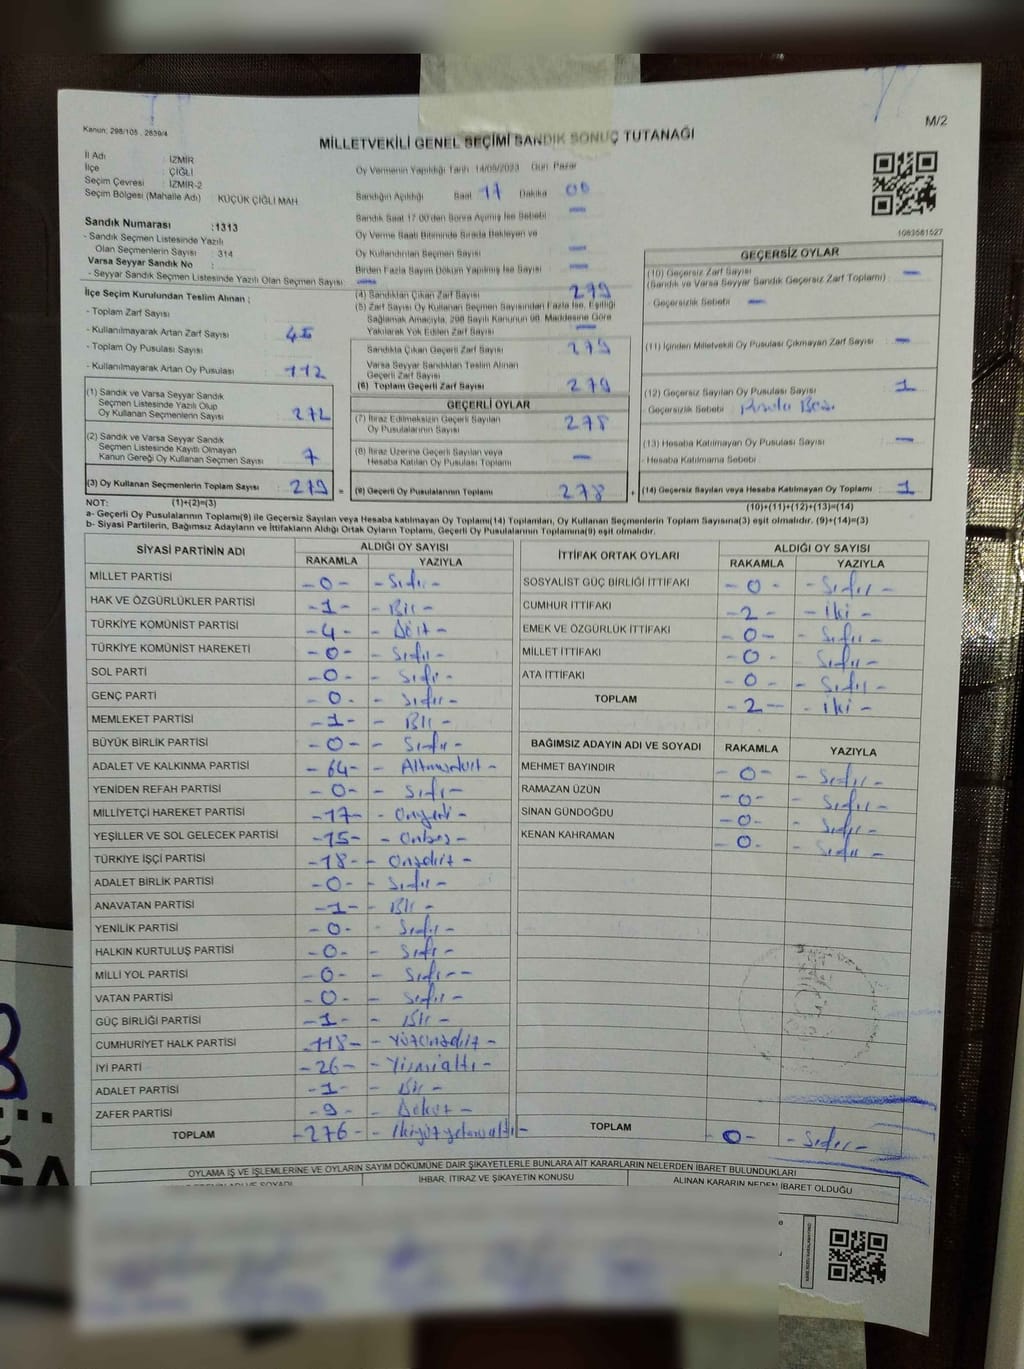 Kanun: 298/105, 2839/4
M/2
MİLLETVEKİLİ GENEL SEÇİMİ SANDIK SONUÇ TUTANAĞI
İl Adı : İZMİR
İlçe : ÇİĞLİ
Seçim Çevresi : İZMİR-2
Seçim Bölgesi (Mahalle Adı) KÜÇÜK ÇİĞLİ MAH.
Oy Vermenin Yapıldığı Tarih 14/05/2023 Gün Pazar
Sandığın Açıldığı Saat 17 Dakika 00
Sandık Saat 17:00'den Sonra Açılmış İse Sebebi —
Oy Verme Saati Bitiminde Sırada Bekleyen ve
Oy Kullandırılan Seçmen Sayısı —
Birden Fazla Sayım Döküm Yapılmış İse Sayısı —
1083581527
Sandık Numarası :1313
- Sandık Seçmen Listesinde Yazılı
Olan Seçmenlerin Sayısı : 314
Varsa Seyyar Sandık No :
- Seyyar Sandık Seçmen Listesinde Yazılı Olan Seçmen Sayısı —
İlçe Seçim Kurulundan Teslim Alınan ;
- Toplam Zarf Sayısı
- Kullanılmayarak Artan Zarf Sayısı : 45
- Toplam Oy Pusulası Sayısı
- Kullanılmayarak Artan Oy Pusulası : 112
(1) Sandık ve Varsa Seyyar Sandık
Seçmen Listesinde Yazılı Olup
Oy Kullanan Seçmenlerin Sayısı : 272
(2) Sandık ve Varsa Seyyar Sandık
Seçmen Listesinde Kayıtlı Olmayan
Kanun Gereği Oy Kullanan Seçmen Sayısı : 7
(3) Oy Kullanan Seçmenlerin Toplam Sayısı : 279
(4) Sandıktan Çıkan Zarf Sayısı 279
(5) Zarf Sayısı Oy Kullanan Seçmen Sayısından Fazla İse, Eşitliği
Sağlamak Amacıyla, 298 Sayılı Kanunun 98. Maddesine Göre
Yakılarak Yok Edilen Zarf Sayısı —
Sandıkta Çıkan Geçerli Zarf Sayısı : 279
Varsa Seyyar Sandıktan Teslim Alınan
Geçerli Zarf Sayısı
(6) Toplam Geçerli Zarf Sayısı : 279
GEÇERLİ OYLAR
(7) İtiraz Edilmeksizin Geçerli Sayılan
Oy Pusulalarının Sayısı : 278
(8) İtiraz Üzerine Geçerli Sayılan veya
Hesaba Katılan Oy Pusulası Toplamı : —
= (9) Geçerli Oy Pusulalarının Toplamı : 278
GEÇERSİZ OYLAR
(10) Geçersiz Zarf Sayısı
(Sandık ve Varsa Seyyar Sandık Geçersiz Zarf Toplamı) : —
- Geçersizlik Sebebi : —
(11) İçinden Milletvekili Oy Pusulası Çıkmayan Zarf Sayısı : —
(12) Geçersiz Sayılan Oy Pusulası Sayısı : 1
- Geçersizlik Sebebi : Pusula Boş
(13) Hesaba Katılmayan Oy Pusulası Sayısı : —
- Hesaba Katılmama Sebebi :
+ (14) Geçersiz Sayılan veya Hesaba Katılmayan Oy Toplamı : 1
NOT: (1)+(2)=(3)
(10)+(11)+(12)+(13)=(14)
a- Geçerli Oy Pusulalarının Toplamı(9) ile Geçersiz Sayılan veya Hesaba katılmayan Oy Toplamı(14) Toplamları, Oy Kullanan Seçmenlerin Toplam Sayısına(3) eşit olmalıdır. (9)+(14)=(3)
b- Siyasi Partilerin, Bağımsız Adayların ve İttifakların Aldığı Ortak Oyların Toplamı, Geçerli Oy Pusulalarının Toplamına(9) eşit olmalıdır.
SİYASİ PARTİNİN ADI ALDIĞI OY SAYISI
RAKAMLA YAZIYLA
MİLLET PARTİSİ -0- -Sıfır-
HAK VE ÖZGÜRLÜKLER PARTİSİ -1- -Bir-
TÜRKİYE KOMÜNİST PARTİSİ -4- -Dört-
TÜRKİYE KOMÜNİST HAREKETİ -0- -Sıfır-
SOL PARTİ -0- -Sıfır-
GENÇ PARTİ -0- -Sıfır-
MEMLEKET PARTİSİ -1- -Bir-
BÜYÜK BİRLİK PARTİSİ -0- -Sıfır-
ADALET VE KALKINMA PARTİSİ -64- -Altmışdört-
YENİDEN REFAH PARTİSİ -0- -Sıfır-
MİLLİYETÇİ HAREKET PARTİSİ -17- -Onyedi-
YEŞİLLER VE SOL GELECEK PARTİSİ -15- -Onbeş-
TÜRKİYE İŞÇİ PARTİSİ -18- -Onsekiz-
ADALET BİRLİK PARTİSİ -0- -Sıfır-
ANAVATAN PARTİSİ -1- -Bir-
YENİLİK PARTİSİ -0- -Sıfır-
HALKIN KURTULUŞ PARTİSİ -0- -Sıfır-
MİLLİ YOL PARTİSİ -0- -Sıfır-
VATAN PARTİSİ -0- -Sıfır-
GÜÇ BİRLİĞİ PARTİSİ -1- -Bir-
CUMHURİYET HALK PARTİSİ -118- -Yüzonsekiz-
İYİ PARTİ -26- -Yirmialtı-
ADALET PARTİSİ -1- -Bir-
ZAFER PARTİSİ -9- -Dokuz-
TOPLAM -276- -İkiyüzyetmişaltı-
İTTİFAK ORTAK OYLARI ALDIĞI OY SAYISI
RAKAMLA YAZIYLA
SOSYALİST GÜÇ BİRLİĞİ İTTİFAKI -0- -Sıfır-
CUMHUR İTTİFAKI -2- -İki-
EMEK VE ÖZGÜRLÜK İTTİFAKI -0- -Sıfır-
MİLLET İTTİFAKI -0- -Sıfır-
ATA İTTİFAKI -0- -Sıfır-
TOPLAM -2- -İki-
BAĞIMSIZ ADAYIN ADI VE SOYADI RAKAMLA YAZIYLA
MEHMET BAYINDIR -0- -Sıfır-
RAMAZAN ÜZÜN -0- -Sıfır-
SİNAN GÜNDOĞDU -0- -Sıfır-
KENAN KAHRAMAN -0- -Sıfır-
TOPLAM -0- -Sıfır-
OYLAMA İŞ VE İŞLEMLERİNE VE OYLARIN SAYIM DÖKÜMÜNE DAİR ŞİKAYETLERLE BUNLARA AİT KARARLARIN NELERDEN İBARET BULUNDUKLARI
İHBAR, İTİRAZ VE ŞİKAYETİN KONUSU
ALINAN KARARIN NEDEN İBARET OLDUĞU